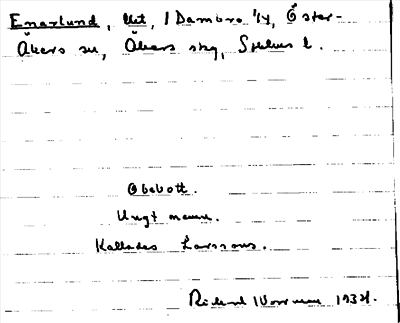 Enarlund, lht, 1 Dambro 1/4, Öster-
Åkers sn, Åkers skg, Sthlms l.
Obebott.
Ungt namn.
Kallades Larssons.
Rickard 1934.